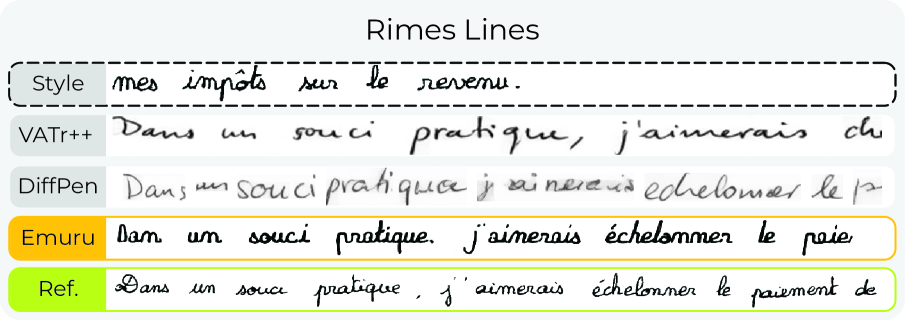 Rimes Lines
Style mes impôts sur le revenu.
VATr++ Dans un souci pratique, j'aimerais ch
DiffPen Dans un souci pratiquea j ainerais echelonner le p
Emuru Dan un souci pratique. j'aimerais échelonner le paie
Ref. Dans un souci pratique, j'aimerais échelonner le paiement de